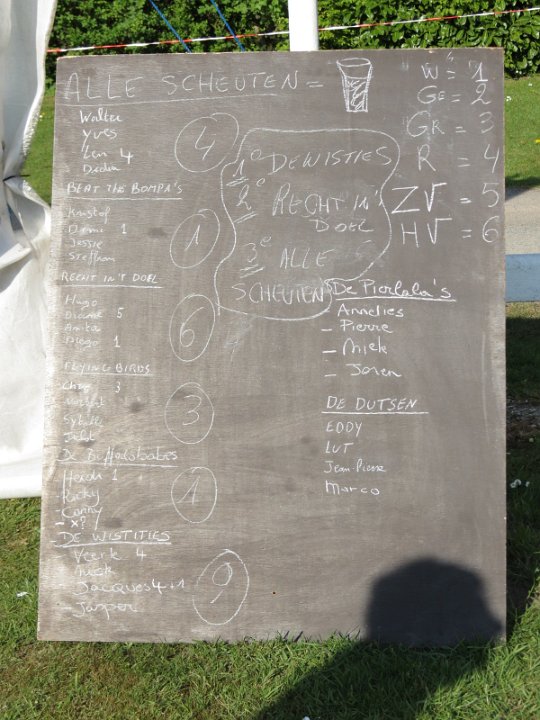 ALLE SCHEUTEN =
Walter
Yves
Len 4
Dedia
4
BEAT THE BOMPA'S
Kristof
Demi 1
Jessie
Steffhan
1
RECHT IN'T DOEL
Hugo
Dianne 5
Anita
Diego 1
6
FLYING BIRDS
3
Sybille
3
De Buffadsbabes
Heidi 1
- Ricky
- Conny
- x?
1
DE WISTITIES
- Veerle 4
- Luck
- Jacques 4+1
- Jasper
9
1° DEWISTIES
2° RECHT IN'T
DOEL
3° ALLE
SCHEUTEN
W = 1
GE = 2
GR = 3
R = 4
ZV = 5
HV = 6
De Pierlala's
- Annelies
- Pierre
- Miek
- Joren
DE DUTSEN
EDDY
LUT
Jean-Pierre
Marco